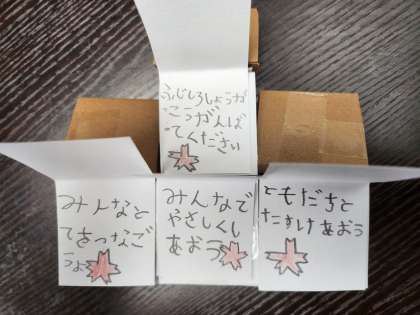 ふじしろしょうが
っこうがんば
ってください
みんなと
てをつなご
うよ
みんなで
やさしくし
あおう
ともだちと
たすけあおう